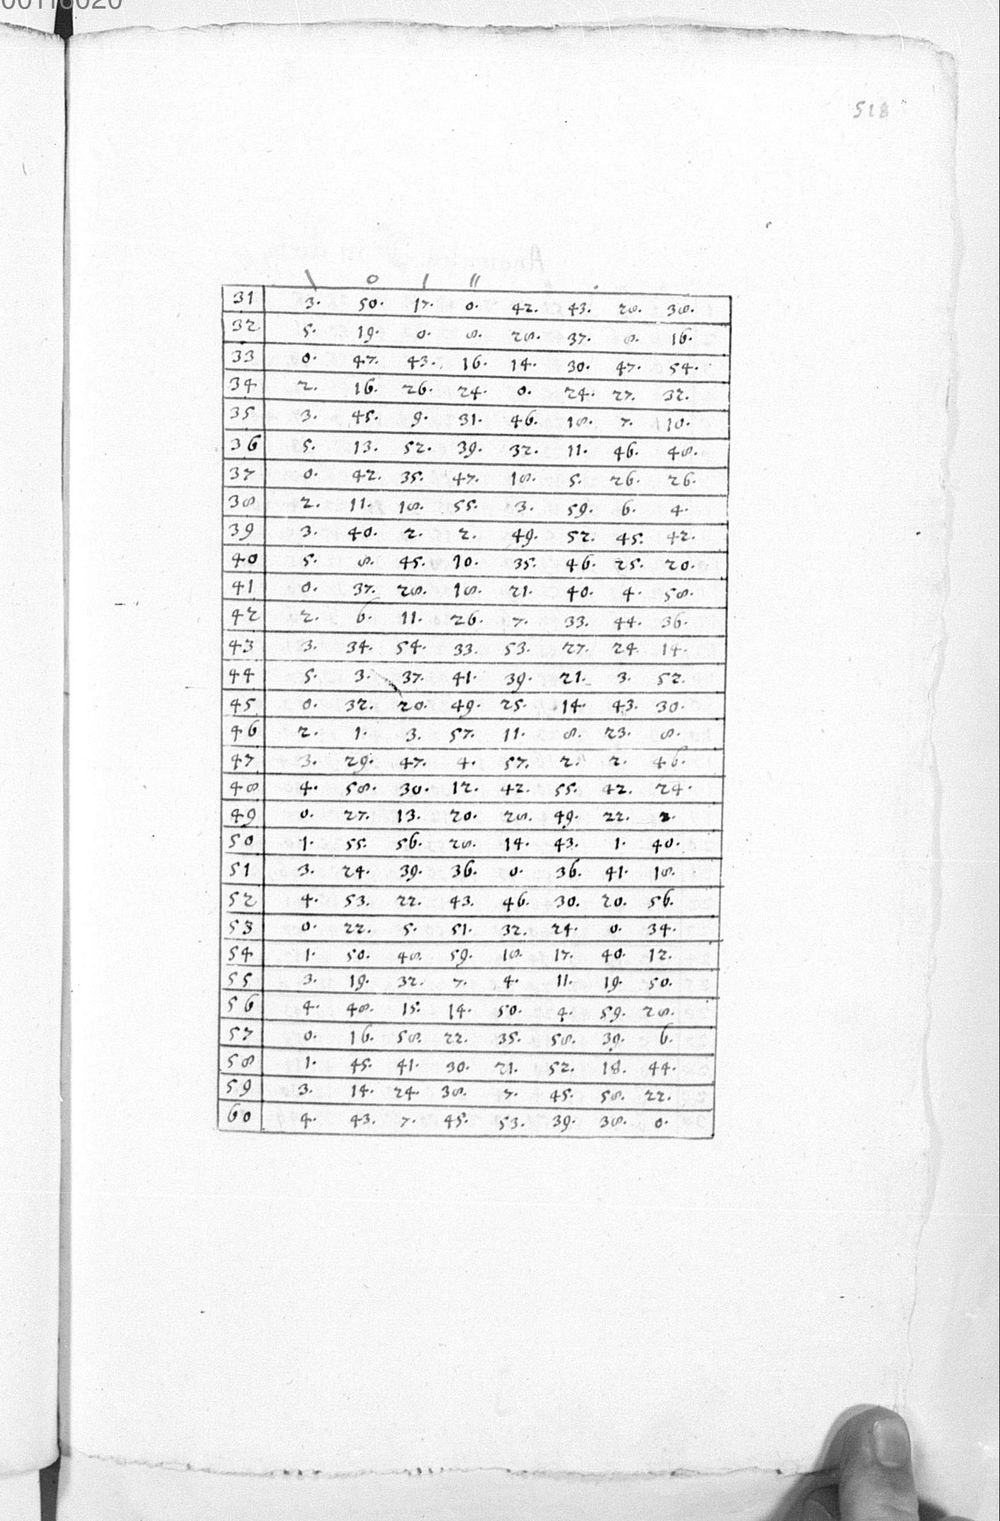 00116020
518
\ 0 / //
31 3. 50. 17. 0. 42. 43. 28. 38.
32 5. 19. 0. 8. 28. 37. 8. 16.
33 0. 47. 43. 16. 14. 30. 47. 54.
34 2. 16. 26. 24. 0. 24. 27. 32.
35 3. 45. 9. 31. 46. 18. 7. 10.
36 5. 13. 52. 39. 32. 11. 46. 48.
37 0. 42. 35. 47. 18. 5. 26. 26.
38 2. 11. 18. 55. 3. 59. 6. 4.
39 3. 40. 2. 2. 49. 52. 45. 42.
40 5. 8. 45. 10. 35. 46. 25. 20.
41 0. 37. 28. 18. 21. 40. 4. 58.
42 2. 6. 11. 26. 7. 33. 44. 36.
43 3. 34. 54. 33. 53. 27. 24. 14.
44 5. 3. 37. 41. 39. 21. 3. 52.
45 0. 32. 20. 49. 25. 14. 43. 30.
46 2. 1. 3. 57. 11. 8. 23. 8.
47 3. 29. 47. 4. 57. 2. 2. 46.
48 4. 58. 30. 12. 42. 55. 42. 24.
49 0. 27. 13. 20. 28. 49. 22. 2.
50 1. 55. 56. 28. 14. 43. 1. 40.
51 3. 24. 39. 36. 0. 36. 41. 18.
52 4. 53. 22. 43. 46. 30. 20. 56.
53 0. 22. 5. 51. 32. 24. 0. 34.
54 1. 50. 48. 59. 18. 17. 40. 12.
55 3. 19. 32. 7. 4. 11. 19. 50.
56 4. 48. 15. 14. 50. 4. 59. 28.
57 0. 16. 58. 22. 35. 58. 39. 6.
58 1. 45. 41. 30. 21. 52. 18. 44.
59 3. 14. 24. 38. 7. 45. 58. 22.
60 4. 43. 7. 45. 53. 39. 38. 0.